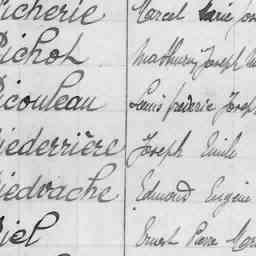 icherie Marcel Marie Jos
ichot Mathurin Joseph
icouleau Louis frederic Joseph
iederrière Joseph Emile
iedvache Edmond Eugène
iel Ernest Pierre Mar